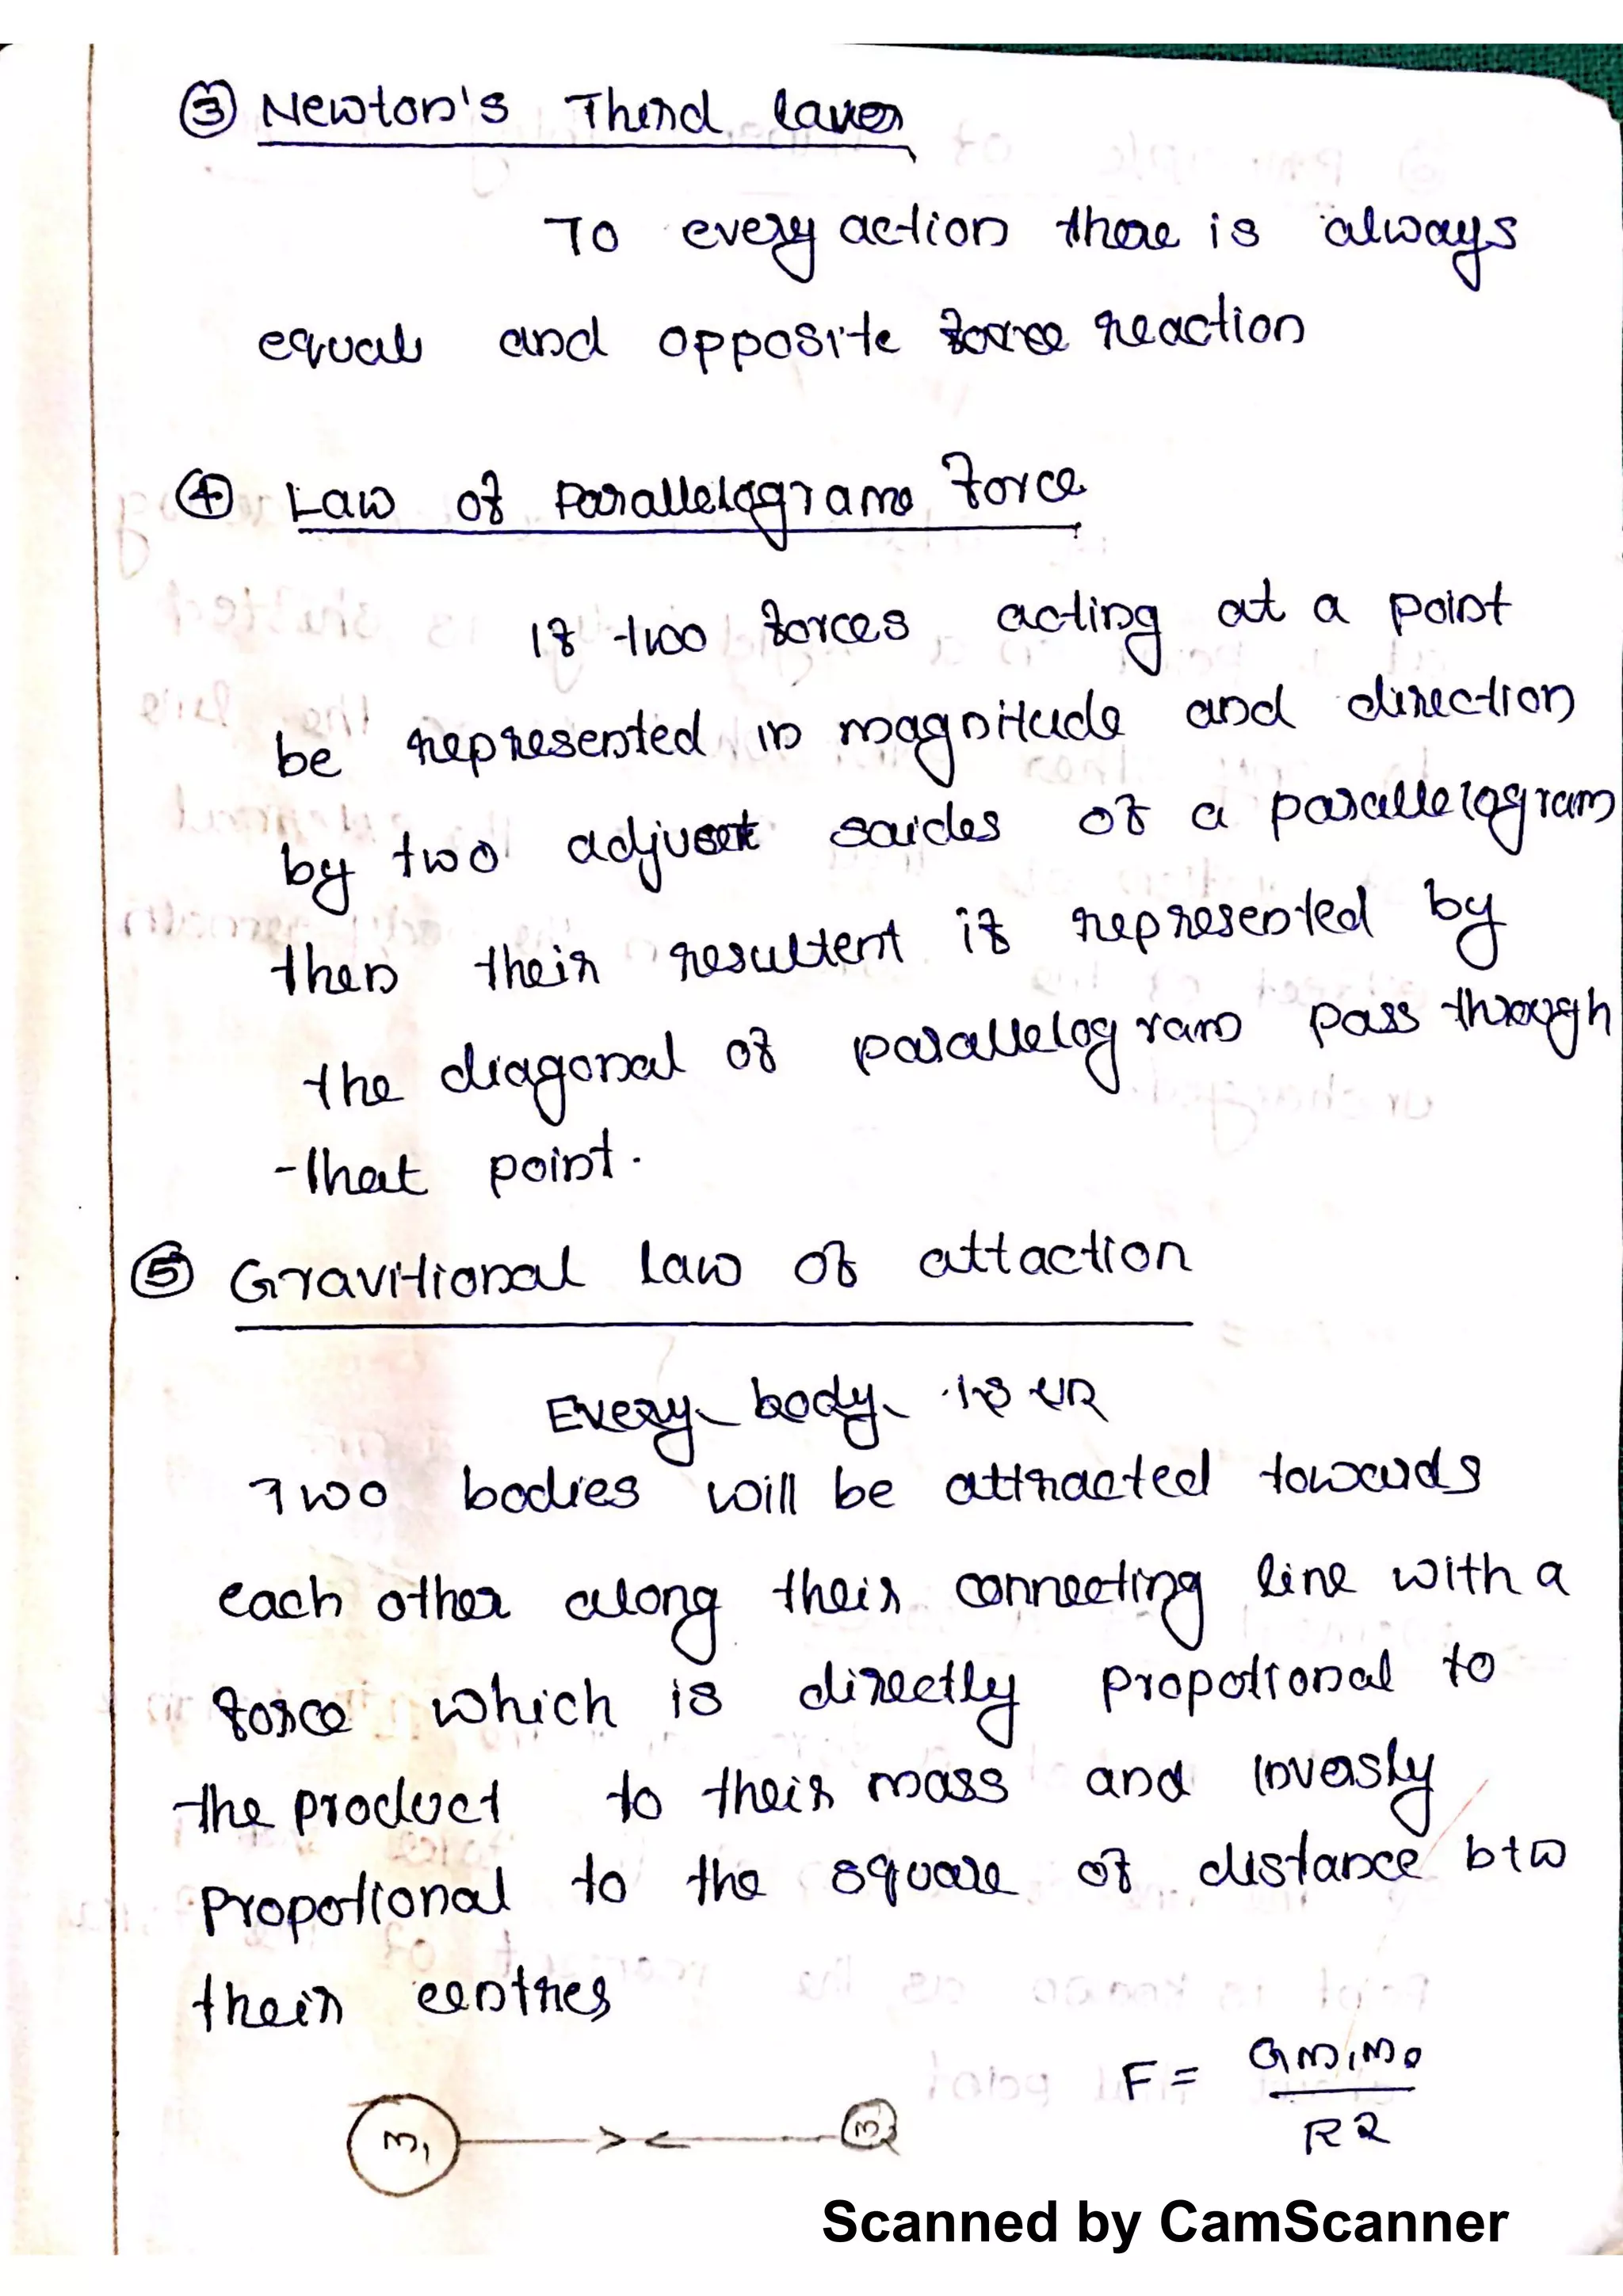 ③ Newton's Third law
To every action there is always
equal and opposite force reaction
④ Law of Parallelogram Force
If two forces acting at a point
be represented in magnitude and direction
by two adjusent saides of a parallelogram
then their resultent if represented by
the diagonal of parallelogram pass through
that point.
⑤ Gravitional law of attaction
Every body is
Two bodies will be attracted towards
each other along their connecting line with a
force which is directly propotional to
the product to their mass and inversly
propotional to the square of distance btw
their centres
F = Gm1m2
R2
m1 m2
Scanned by CamScanner